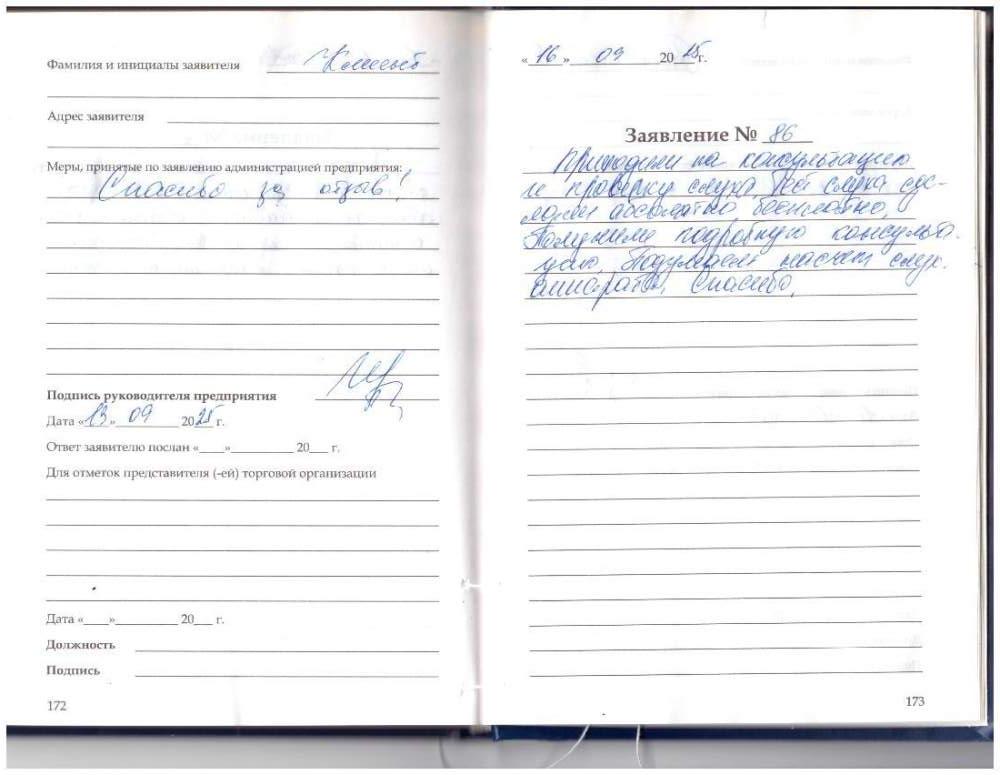 Фамилия и инициалы заявителя
Адрес заявителя
Меры, принятые по заявлению администрацией предприятия:
Спасибо за отзыв!
Подпись руководителя предприятия
Дата «13» 09 2025 г.
Ответ заявителю послан «____»__________ 20___ г.
Для отметок представителя (-ей) торговой организации
Дата «____»__________ 20___ г.
Должность
Подпись
172
«16» 09 2025г.
Заявление № 86
Приходили на консультацию
и проверку слуха. Тест слуха сде-
лали абсолютно бесплатно.
Получили подробную консульта-
цию. Подумаем насчет слух.
аппаратов. Спасибо.
173